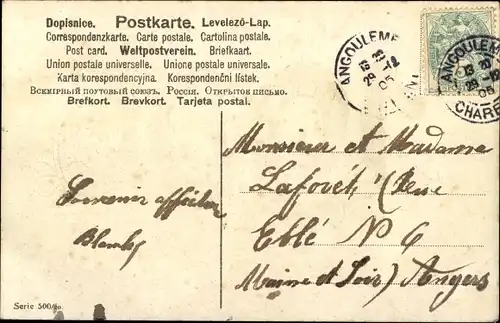 Dopisnice. Postkarte. Levelező-Lap.
Correspondenzkarte. Carte postale. Cartolina postale.
Post card. Weltpostverein. Briefkaart.
Union postale universelle. Unione postale universale.
Karta korespondencyjna. Korespondenční lístek.
Всемірный портовый союзъ. Россія. Открытое письмо.
Brefkort. Brevkort. Tarjeta postal.
ANGOULEME
13 25
29 -12
05
ANGOULEME
13 20
29 -12
05
CHARE
Monsieur et Madame
Laforêt (Rue
Eblé N 6
Maine et Loir) Angers
Souvenir affectueux
Serie 500/